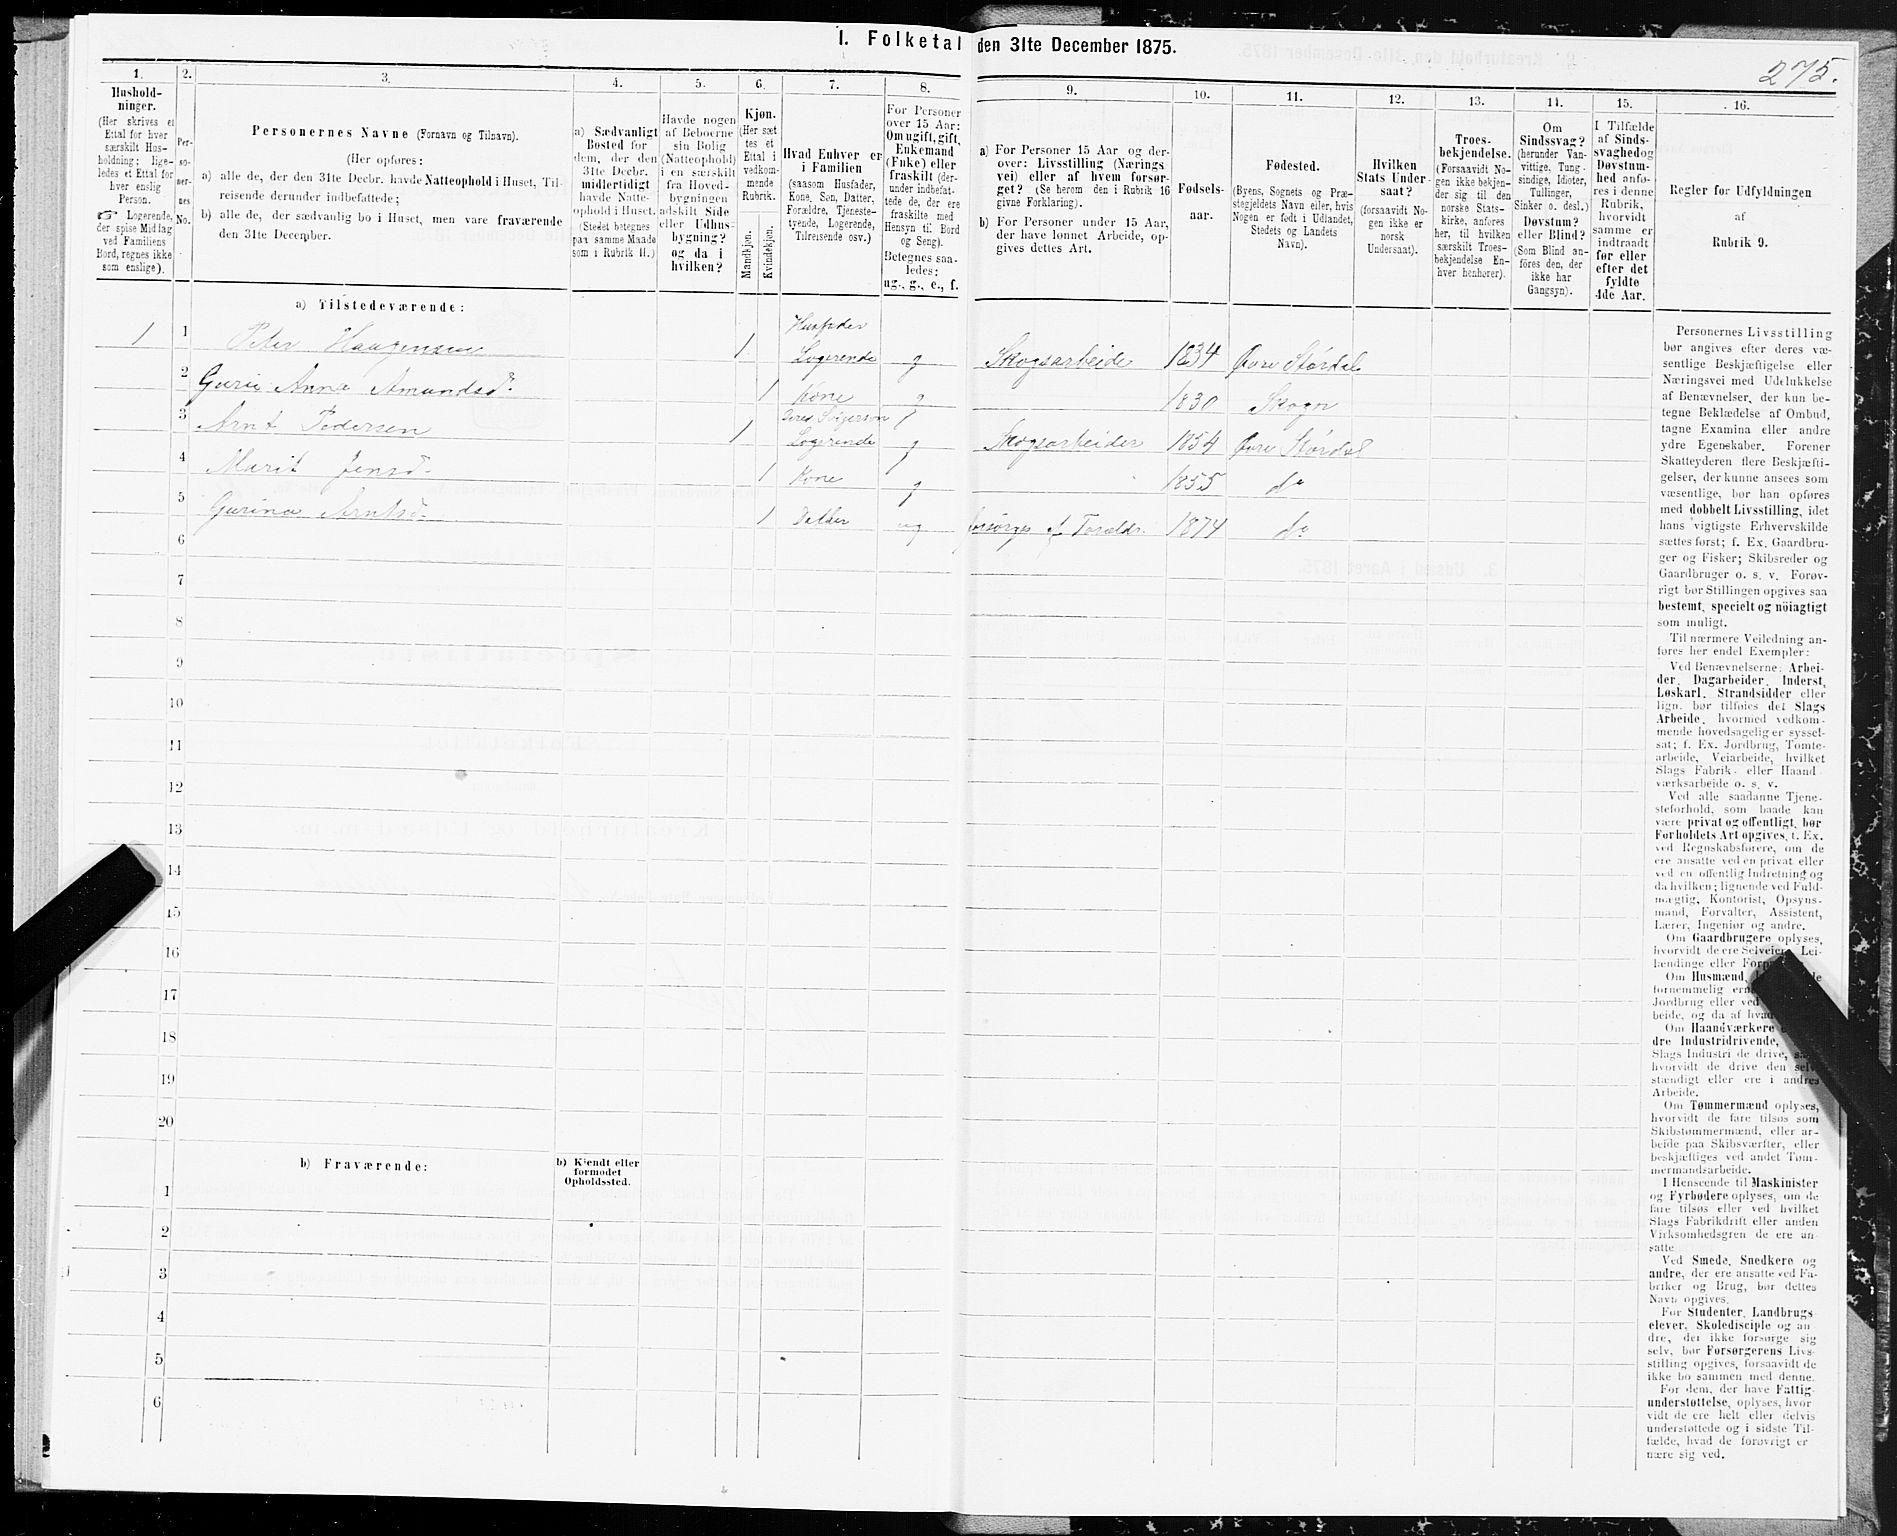 I. Folketal den 31te December 1875.
275.
1.
Hushold-
ninger.
(Her skrives et
Ettal for hver
særskilt Hus-
holdning; lige-
ledes et Ettal for
hver enslig
Person.
☞ Logerende,
der spise Middag
ved Familiens
Bord, regnes ikke
som enslige).
2.
Per-
so-
ner-
nes
No.
3.
Personernes Navne (Fornavn og Tilnavn).
(Her opføres:
a) alle de, der den 31te Decbr. havde Natteophold i Huset, Til-
reisende derunder indbefattede;
b) alle de, der sædvanlig bo i Huset, men vare fraværende
den 31te December.
4.
a) Sædvanligt
Bosted for
dem, der den
31te Decbr.
midlertidigt
havde Natte-
ophold i Huset.
(Stedet betegnes
paa samme Maade
som i Rubrik 11.)
5.
Havde nogen
af Beboerne
sin Bolig
(Natteophold)
i en særskilt
fra Hoved-
bygningen
adskilt Side
eller Udhus-
bygning?
og da i
hvilken?
6.
Kjøn.
(Her sæt-
tes et
Ettal i
vedkom-
mende
Rubrik.
Mandkjøn.
Kvindekjøn.
7.
Hvad Enhver er
i Familien
(saasom Husfader,
Kone, Søn, Datter,
Forældre, Tjeneste-
tyende, Logerende,
Tilreisende osv.)
8.
For Personer
over 15 Aar:
Om ugift, gift,
Enkemand
(Enke) eller
fraskilt (der-
under indbefat-
tede de, der ere
fraskilte med
Hensyn til Bord
og Seng).
Betegnes saa-
ledes:
ug., g., e., f.
9.
a) For Personer 15 Aar og der-
over: Livsstilling (Nærings
vei) eller af hvem forsør-
get? (Se herom den i Rubrik 16
givne Forklaring).
b) For Personer under 15 Aar,
der have lønnet Arbeide, op-
gives dettes Art.
10.
Fødsels-
aar.
11.
Fødested.
(Byens, Sognets og Præ-
stegjeldets Navn eller, hvis
Nogen er født i Udlandet,
Stedets og Landets
Navn).
12.
Hvilken
Stats Under-
saat?
(forsaavidt No-
gen ikke er
norsk
Undersaat).
13.
Troes-
bekjendelse.
(Forsaavidt No-
gen ikke bekjen-
der sig til den
norske Stats-
kirke, anføres
her, til hvilken
særskilt Troes-
bekjendelse En-
hver henhører).
14.
Om
Sindssvag?
(herunder Van-
vittige, Tung-
sindige, Idioter,
Tullinger,
Sinker o. desl.)
Døvstum?
eller Blind?
(Som Blind an-
føres den, der
ikke har
Gangsyn).
15.
I Tilfælde
af Sinds-
svaghed og
Døvstum-
hed anfø-
res i denne
Rubrik,
hvorvidt
samme er
indtraadt
før eller
efter det
fyldte
4de Aar.
16.
Regler for Udfyldningen
af
Rubrik 9.
a) Tilstedeværende:
1 1 Peter Haagensen 1 Husfader Logerende g Skogsarbeide 1834 Øvre Størdal
2 Gurie Anna Amundsd. 1 Kone g 1830 Skogn
3 Arnt Pedersen 1 Logerende g Skogsarbeider 1854 Øvre Størdal
4 Marit Jensd. 1 Kone g 1855 do
5 Gurina Arntsd. 1 Datter ug forsørges af Foreldr. 1874 do
6
7
8
9
10
11
12
13
14
15
16
17
18
19
20
b) Fraværende:
b) Kjendt eller
formodet
Opholdssted.
1
2
3
4
5
6
Personernes Livsstilling
bør angives efter deres væ-
sentlige Beskjæftigelse eller
Næringsvei med Udelukkelse
af Benævnelser, der kun be-
tegne Beklædelse af Ombud,
tagne Examina eller andre
ydre Egenskaber. Forener
Skatteyderen flere Beskjæfti-
gelser, der kunne ansees som
væsentlige, bør han opføres
med dobbelt Livsstilling, idet
hans vigtigste Erhvervskilde
sættes først; f. Ex. Gaardbru-
ger og Fisker; Skibsreder og
Gaardbruger o. s. v. Forøv-
rigt bør Stillingen opgives saa
bestemt, specielt og nøiagtigt
som muligt.
Til nærmere Veiledning an-
føres her endel Exempler:
Ved Benævnelserne: Arbei-
der, Dagarbeider, Inderst,
Løskarl, Strandsidder eller
lign. bør tilføies det Slags
Arbeide, hvormed vedkom-
mende hovedsagelig er syssel-
sat; f. Ex. Jordbrug, Tomte-
arbeide, Veiarbeide, hvilket
Slags Fabrik- eller Haand-
værksarbeide o. s. v.
Ved alle saadanne Tjene-
steforhold, som baade kan
være privat og offentligt, bør
Forholdets Art opgives, t. Ex.
ved Regnskabsførere, om de
ere ansatte ved en privat eller
ved en offentlig Indretning og
da hvilken; lignende ved Fuld-
mægtig, Kontorist, Opsyns-
mand, Forvalter, Assistent,
Lærer, Ingeniør og andre.
Om Gaardbrugere oplyses,
hvorvidt de ere Selveiere, Lei-
lændinge eller
Om Husmænd,
fornemmelig
Jordbrug eller ved
beide, og da af
Om Haandværkere
dre Industridrivende,
Slags Industri de drive,
hvorvidt de drive den selv-
stændigt eller ere i andres
Arbeide.
Om Tømmermænd oplyses,
hvorvidt de fare tilsøs som
Skibstømmermænd, eller ar-
beide paa Skibsværfter, eller
beskjæftiges ved andet Tøm-
mermandsarbeide.
I Henseende til Maskinister
og Fyrbødere oplyses, om de
fare tilsøs eller ved hvilket
Slags Fabrikdrift eller anden
Virksomhedsgren de ere an-
satte.
Ved Smede, Snedkere og
andre, der ere ansatte ved Fa-
briker og Brug, bør dettes
Navn opgives.
For Studenter, Landbrugs-
elever, Skoledisciple og an-
dre, der ikke forsørge sig
selv, bør Forsørgerens Livs-
stilling opgives, forsaavidt de
ikke bo sammen med denne.
For dem, der have Fattig-
understøttelse, oplyses, hvor-
vidt de ere helt eller delvis
understøttede og i sidste Til-
fælde, hvad de forøvrigt er-
nære sig ved.